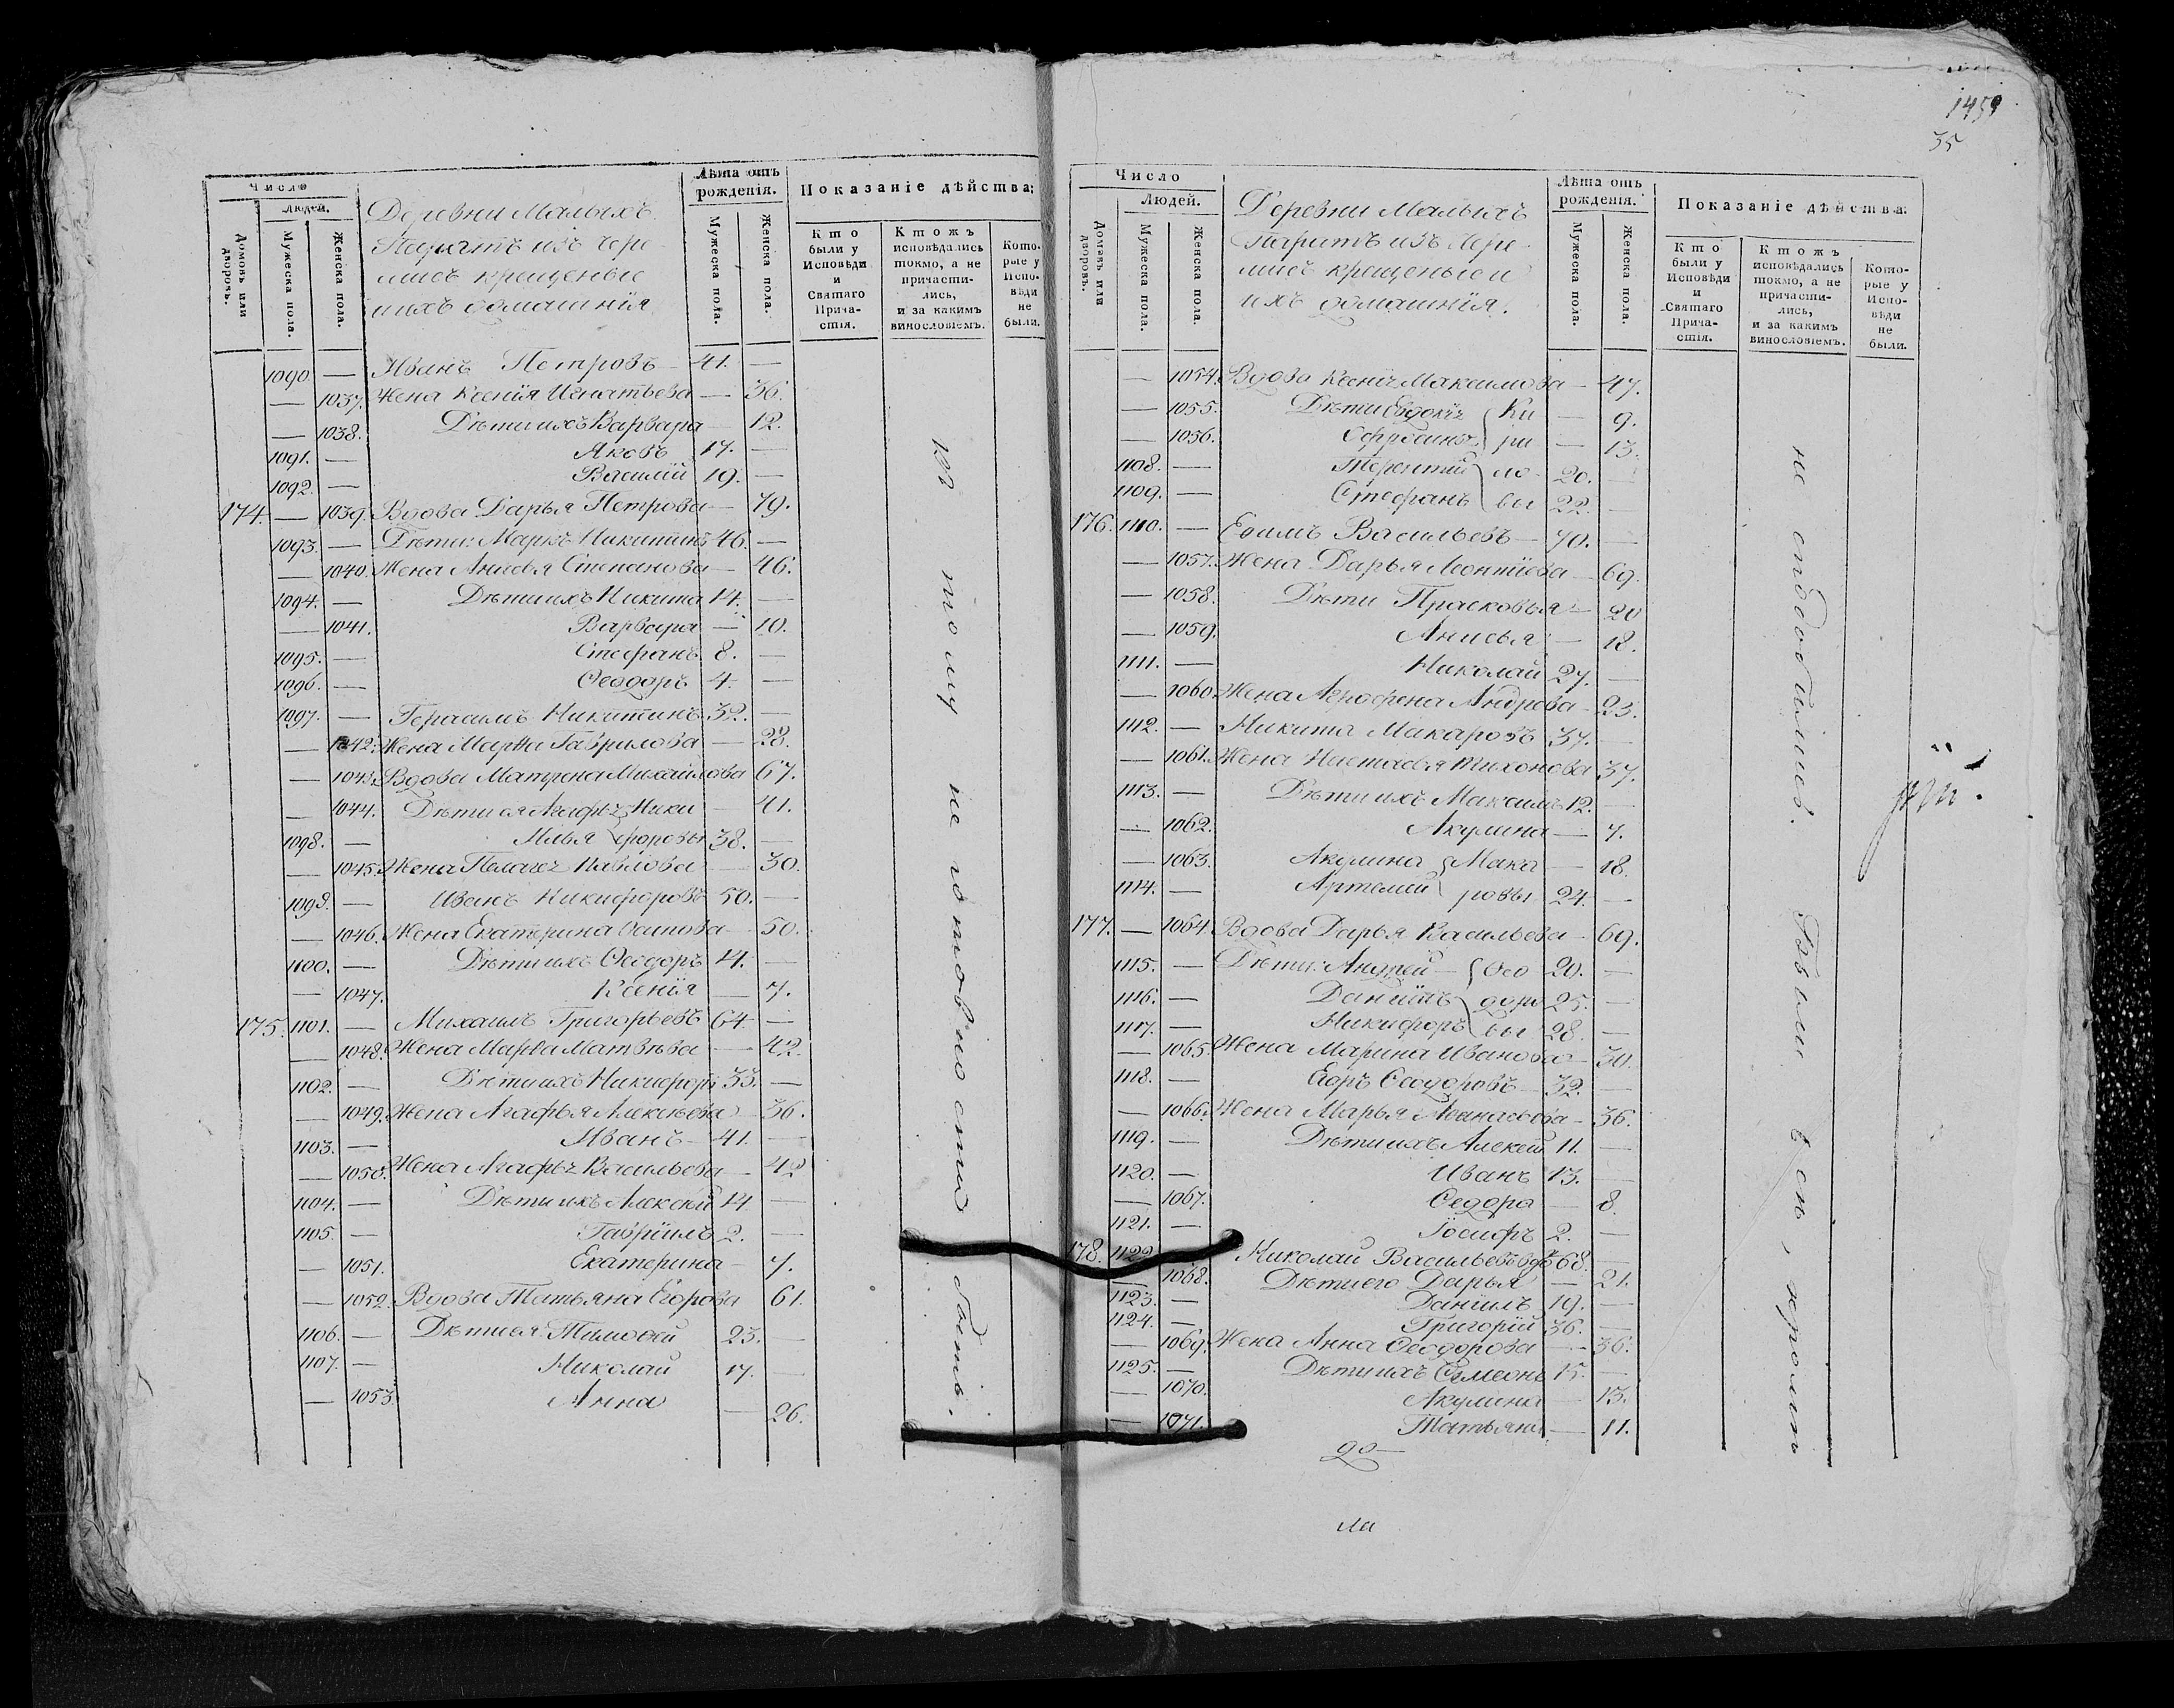 1459
35
Число
Людей.
Домовъ или дворовъ.
Мужеска пола.
Женска пола.
Деревни Малыхъ
изъ Чере-
мисъ крещеные
и ихъ домашнія
Лѣта отъ рожденія.
Мужеска пола.
Женска пола.
Показаніе дѣйства;
Кто были у Исповѣди и Святаго Причастія.
Ктожъ исповѣдались токмо, а не причастились, и за какимъ винословіемъ.
Которые у Исповѣди не были.
1090. — Иванъ Петровъ — 41. —
— 1037. Жена Ксенія Игнатьева — 36.
— 1038. Дѣти ихъ Варвара — 12.
1091. — Яковъ 17. —
1092. — Василій 19. —
174. — 1039. Вдова Дарья Петрова — 79.
1093. — Дѣти: Маркъ Никитинъ 46. —
— 1040. Жена Анисья Степанова — 46.
1094. — Дѣти ихъ Никита 14. —
— 1041. Варвара — 10.
1095. — Стефанъ 8. —
1096. — Ѳеодоръ 4. —
1097. — Герасимъ Никитинъ 32. —
— 1042. Жена Марѳа Гаврилова — 28.
— 1043. Вдова Матрена Михайлова 67.
— 1044. Дѣти ея Агафья Ники — 41.
1098. — Илья форовы 38. —
— 1045. Жена Пелагея Павлова — 30.
1099. — Иванъ Никифоровъ 50. —
— 1046. Жена Екатерина Осипова — 50.
1100. — Дѣти ихъ Ѳеодоръ 14. —
— 1047. Ксенія — 7.
175. 1101. — Михаилъ Григорьевъ 64. —
— 1048. Жена Марѳа Матвѣева — 42.
1102. — Дѣти ихъ Никифоръ 33. —
— 1049. Жена Агафья Алексѣева — 36.
1103. — Иванъ — 41. —
— 1050. Жена Агафья Васильева — 42
1104. — Дѣти ихъ Алексѣй 14. —
1105. — Гавріилъ 2. —
— 1051. Екатерина — 7.
— 1052. Вдова Татьяна Егорова 61.
1106. — Дѣти ея Тимоѳей 23. —
1107. — Николай 17. —
— 1053. Анна — 26.
по тому не готовности быть.
Число
Людей.
Домовъ или дворовъ.
Мужеска пола.
Женска пола.
Деревни Малыхъ
изъ Чере-
мисъ крещеные и
ихъ домашнія.
Лѣта отъ рожденія.
Мужеска пола.
Женска пола.
Показаніе дѣйства:
Кто были у Исповѣди и Святаго Причастія.
Ктожъ исповѣдались токмо, а не причастились, и за какимъ винословіемъ.
Которые у Исповѣди не были.
— 1054. Вдова Ксенія Максимова — 47.
— 1055. Дѣти Евдокія Ки — 9.
— 1056. Ефросинья ри — 13.
1108. — Терентій ло 20. —
1109. — Стефанъ вы 22. —
176. 1110. — Еѳимъ Васильевъ — 70. —
— 1057. Жена Дарья Леонтіева — 69.
— 1058. Дѣти Прасковья — 20
— 1059. Анисья — 18.
1111. — Николай 27. —
— 1060. Жена Агрофена Андрева — 23.
1112. — Никита Макаровъ 37. —
— 1061. Жена Настасья Тихонова 37.
1113. — Дѣти ихъ Максимъ 12. —
— 1062. Акулина — 7.
— 1063. Акулина Мака — 18.
1114. — Артемій ровы 24. —
177. — 1064. Вдова Дарья Васильева — 69.
1115. — Дѣти: Андрей — Ѳео 20. —
1116. — Даніилъ доро 25. —
1117. — Никифоръ вы 28. —
— 1065. Жена Марина Иванова — 30.
1118. — Егоръ Ѳеодоровъ — 32. —
— 1066. Жена Марья Аѳанасьева — 36.
1119. — Дѣти ихъ Алексѣй 11. —
1120. — Иванъ 13. —
— 1067. Ѳедора — 8.
1121. — Іосифъ 2. —
178. 1122. Николай Васильевъ вдъ 68. —
— 1068. Дѣти его Дарья — 21.
1123. — Даніилъ 19. —
1124. — Григорій 36. —
— 1069. Жена Анна Ѳеодорова — 36.
1125. — Дѣти ихъ Сѵмеонъ 15. —
— 1070. Акулина — 13.
— 1071. Татьяна — 11.
не сподобились. Были всѣ, кромѣ
до
ла